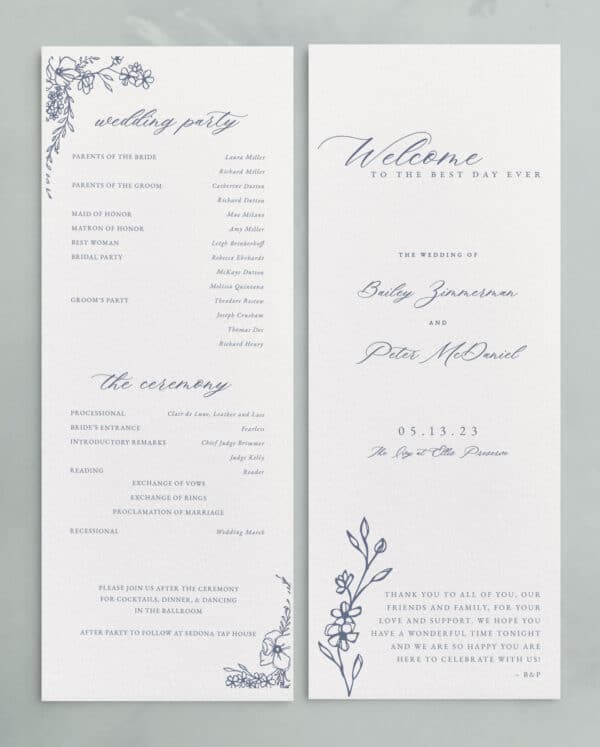 wedding party
PARENTS OF THE BRIDE Laura Miller
Richard Miller
PARENTS OF THE GROOM Catherine Dutton
Richard Dutton
MAID OF HONOR Mae Milano
MATRON OF HONOR Amy Miller
BEST WOMAN Leigh Brinkerhoff
BRIDAL PARTY Rebecca Ehrhardt
McKaye Dutton
Melissa Quintana
GROOM'S PARTY Theodore Rostow
Joseph Crusham
Thomas Doc
Richard Henry
the ceremony
PROCESSIONAL Clair de Lune, Leather and Lace
BRIDE'S ENTRANCE Fearless
INTRODUCTORY REMARKS Chief Judge Brimmer
Judge Kelly
READING Reader
EXCHANGE OF VOWS
EXCHANGE OF RINGS
PROCLAMATION OF MARRIAGE
RECESSIONAL Wedding March
PLEASE JOIN US AFTER THE CEREMONY
FOR COCKTAILS, DINNER, & DANCING
IN THE BALLROOM
AFTER PARTY TO FOLLOW AT SEDONA TAP HOUSE
Welcome
TO THE BEST DAY EVER
THE WEDDING OF
Bailey Zimmerman
AND
Peter McDaniel
05.13.23
The Ivy at Ellis Preserve
THANK YOU TO ALL OF YOU, OUR
FRIENDS AND FAMILY, FOR YOUR
LOVE AND SUPPORT. WE HOPE YOU
HAVE A WONDERFUL TIME TONIGHT
AND WE ARE SO HAPPY YOU ARE
HERE TO CELEBRATE WITH US!
– B&P